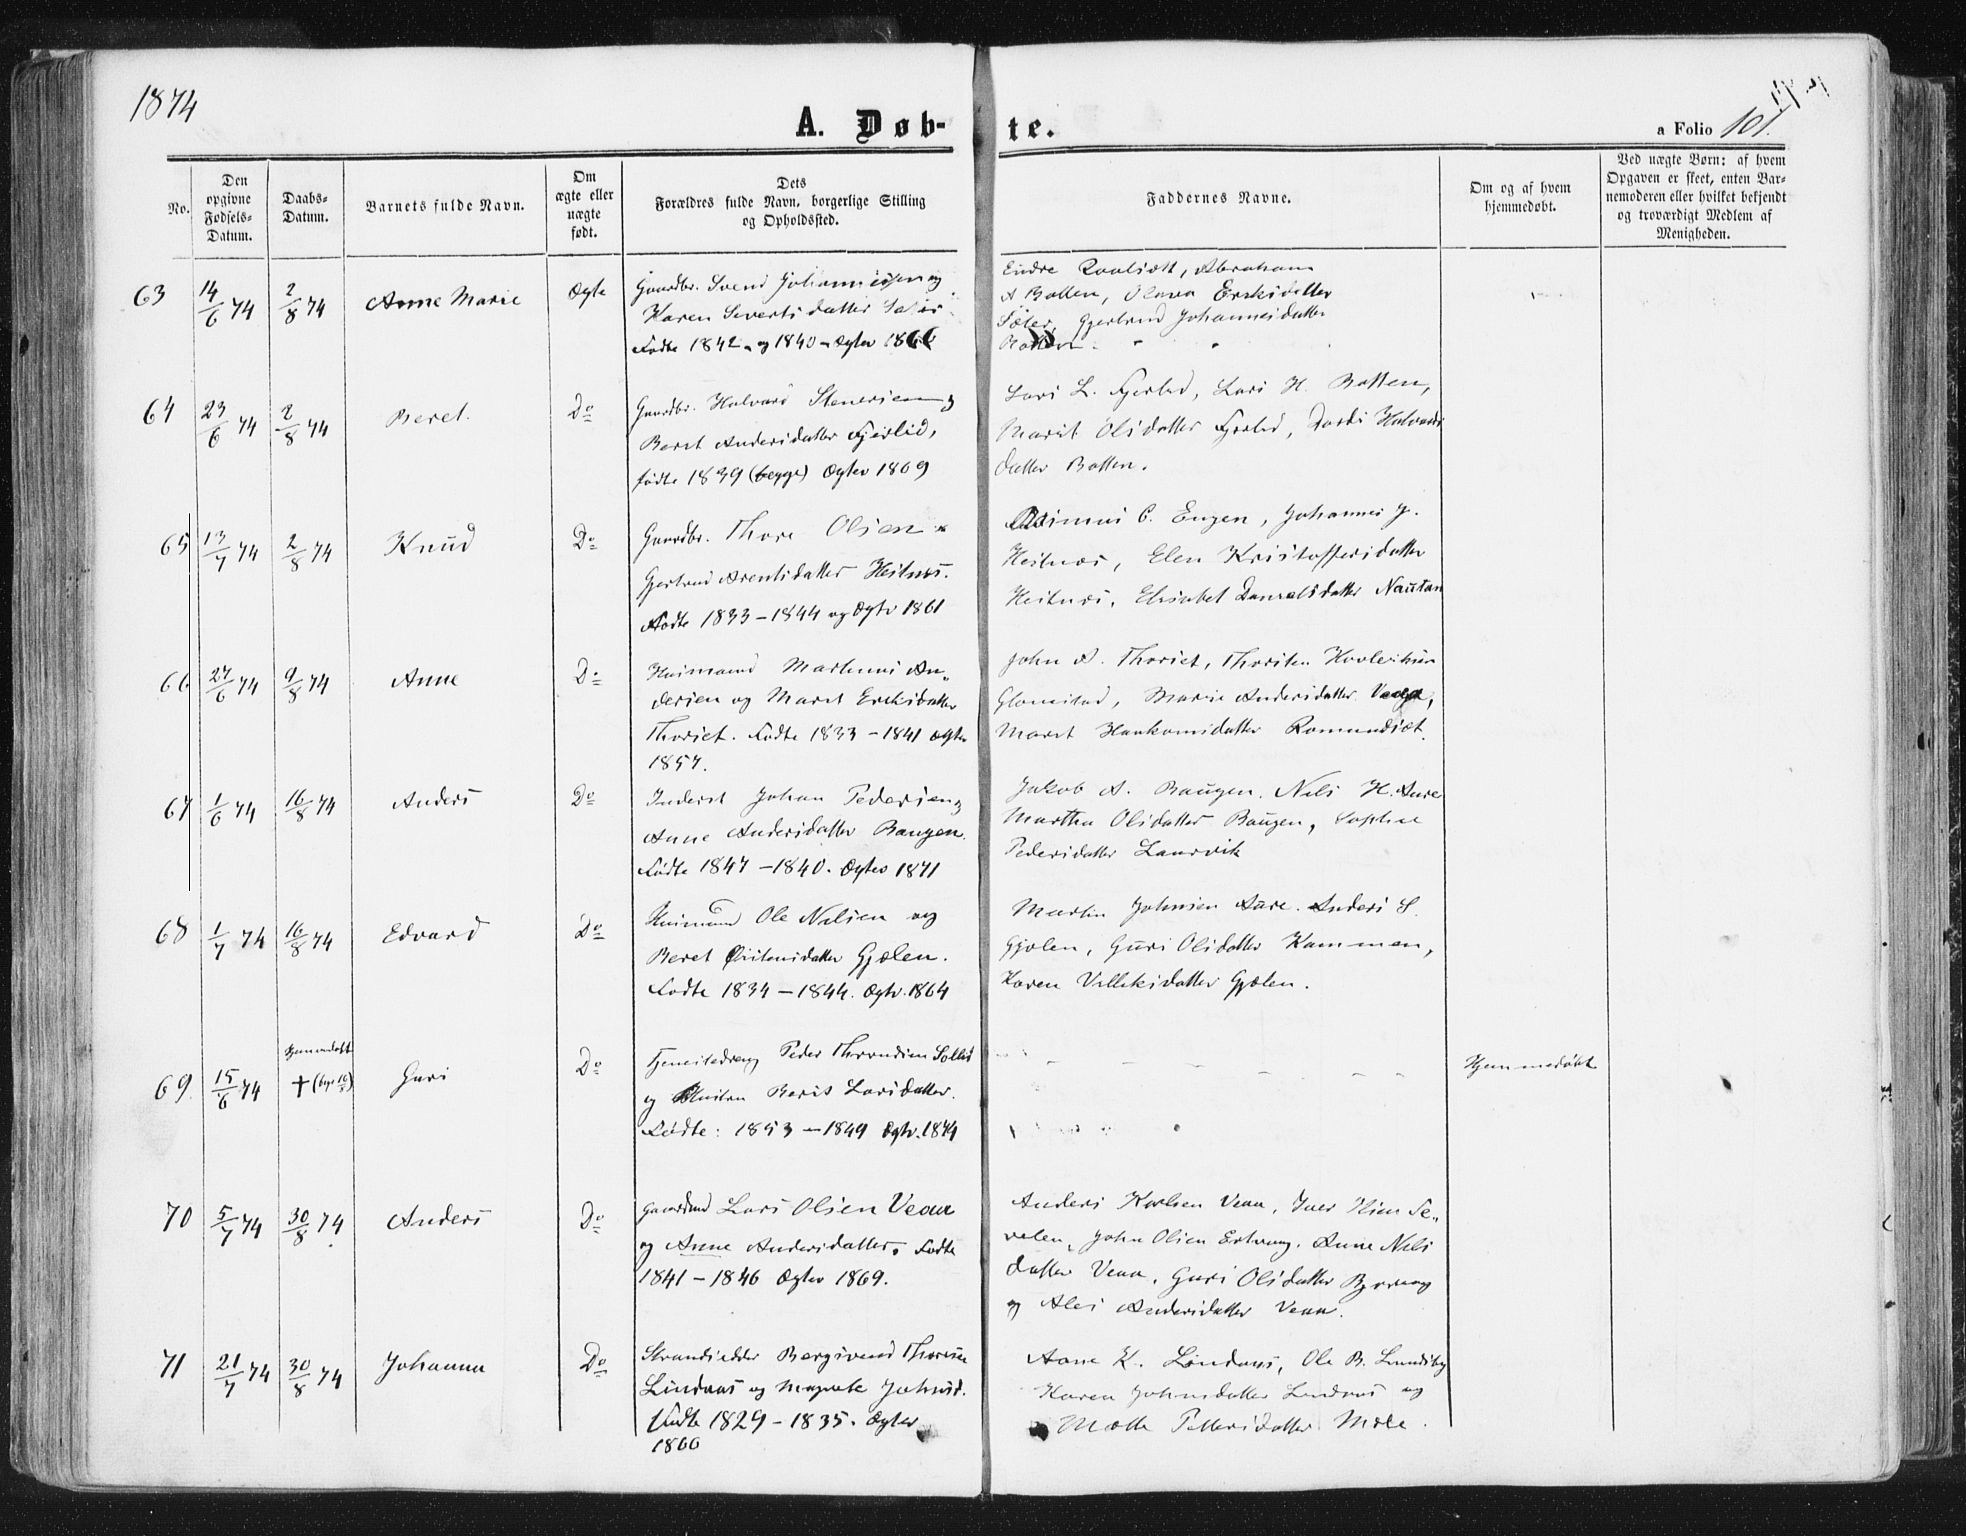 1874
A. Døb-
te.
a Folio 101.
No.
Den opgivne Fødsels-Datum.
Daabs-Datum.
Barnets fulde Navn.
Om ægte eller uægte født.
Dets Forældres fulde Navn, borgerlige Stilling og Opholdssted.
Faddernes Navne.
Om og af hvem hjemmedøbt.
Ved uægte Børn: af hvem Opgaven er skeet, enten Barnemoderen eller hvilket bekjendt og troværdigt Medlem af Menigheden.
63 14/6 74 2/8 74 Anne Marie Ægte
Gaardbr. Svend Johannessen og
Karen Sivertsdatter
Fødte 1842 og 1840 - Ægtev 1866
Endre Abraham
A Botten, Olava Eriksdatter
Sæter, Gjertrud Johannesdatter
64 23/6 74 2/8 74 Beret Do
Gaardbr. Halvard Stenersen og
Beret Andersdatter Fjerlid,
fødte 1839 (begge) Ægtev 1869
Lars L. Fjerlid, Lars H. Botten,
Marit Olsdatter Fjerlid, Halvards
datter Botten.
65 13/7 74 2/8 74 Knud Do
Gaardbr. Thore Olsen
Gjertrud Arentsdatter Heitnes.
Fødte 1833 - 1844 og Ægtv 1861
Rasmus C. Engen, Johannes J.
Heitnes, Elen Kristoffersdatter
Heitnes, Elisabet Danielsdatter
66 27/6 74 9/8 74 Anne Do
Husmand Marhinus An-
dersen og Marit Eriksdatter
Thoriet. Fødte 1833 - 1841 Ægtev
1857.
John A. Thoriet,
Glomstad, Marie Andersdatter
Marit Haakonsdatter Romundset
67 1/6 74 16/8 74 Anders Do
Inderst Johan Pedersen og
Anne Andersdatter Baugen.
Fødte 1847 - 1840. Ægtev 1871
Jakob A. Baugen. Nils H. Aure
Martha Olsdatter Baugen, Sophie
Pedersdatter Laurvik
68 1/7 74 16/8 74 Edvard Do
Husmand Ole Nilsen og
Beret Gjølen.
Fødte 1834 - 1844. Ægtv. 1864
Martin Johnsen Aure. Anders S.
Gjølen, Guri Olsdatter Kammen,
Karen Gjølen.
69. 15/6 74 Hjemmedøbt † Guri Do
Tjenestedreng Peder Throndsen
og Beris Larsdatter.
Fødte: 1853 - 1849 Ægtv. 1874
Hjemmedøbt
70 5/7 74 30/8 74 Anders Do
Gaardmd Lars Olsen Veaa
og Anne Andersdatter. Fødte
1841 - 1846 Ægtev 1869.
Anders Karlsen Veaa, Iver
John Olsen Anne Nils
datter Veaa, Guri Olsdatter
og Ales Andersdatter Veaa.
71 21/7 74 30/8 74 Johanna Do
Strandsidder Bergsvend Thoresen
Lindaas og Magrete
Fødte 1829 - 1835. Ægtev
1866
Aane K. Lindaas, Ole B.
Karen Johnsdatter Lindaas og
Mette Pettersdatter